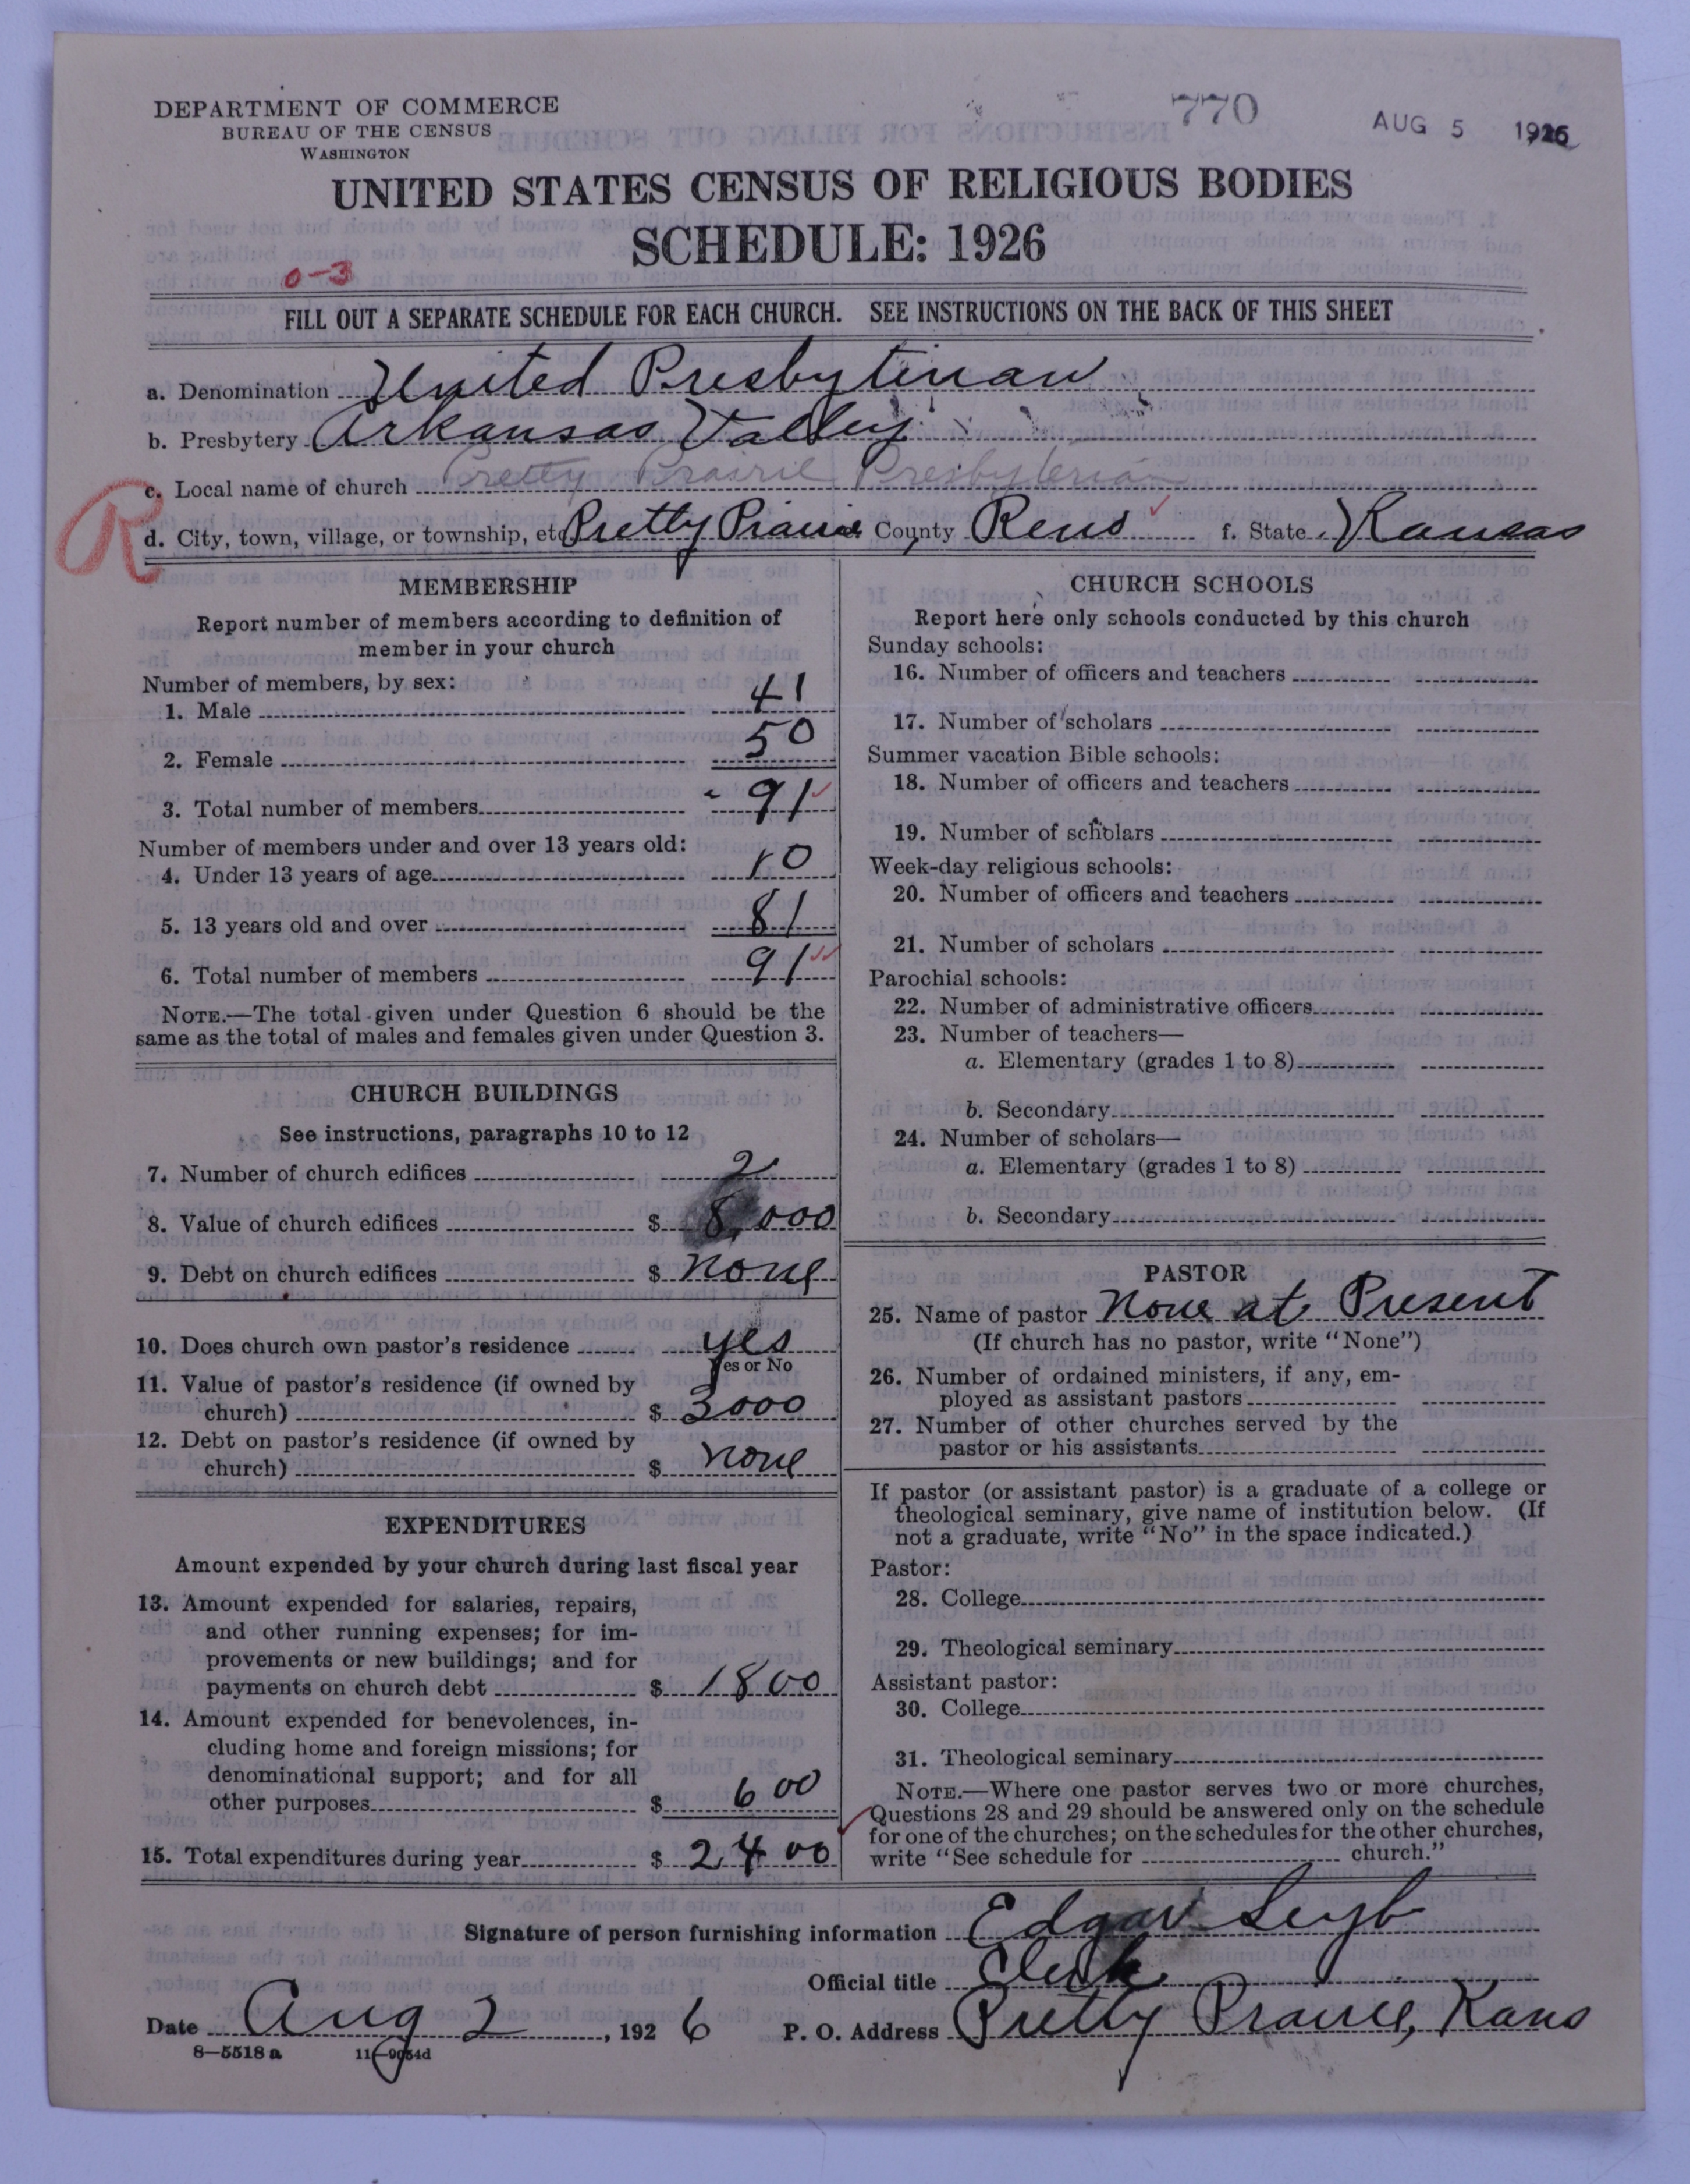 DEPARTMENT OF COMMERCE
BUREAU OF THE CENSUS
WASHINGTON
770
AUG 5 1926
UNITED STATES CENSUS OF RELIGIOUS BODIES
SCHEDULE: 1926
0-3
FILL OUT A SEPARATE SCHEDULE FOR EACH CHURCH. SEE INSTRUCTIONS ON THE BACK OF THIS SHEET
a. Denomination United Presbyterian
b. Presbytery Arkansas Valley
c. Local name of church Pretty Prairie Presbyterian
R
d. City, town, village, or township, etc. Pretty Prairie County Reno f. State Kansas
MEMBERSHIP
Report number of members according to definition of
member in your church
Number of members, by sex:
1. Male 41
2. Female 50
3. Total number of members 91
Number of members under and over 13 years old:
4. Under 13 years of age 10
5. 13 years old and over 81
6. Total number of members 91
NOTE.—The total given under Question 6 should be the
same as the total of males and females given under Question 3.
CHURCH BUILDINGS
See instructions, paragraphs 10 to 12
7. Number of church edifices 2
8. Value of church edifices $ 8,000
9. Debt on church edifices $ none
10. Does church own pastor's residence yes
Yes or No
11. Value of pastor's residence (if owned by
church) $ 3000
12. Debt on pastor's residence (if owned by
church) $ none
EXPENDITURES
Amount expended by your church during last fiscal year
13. Amount expended for salaries, repairs,
and other running expenses; for im-
provements or new buildings; and for
payments on church debt $ 1800
14. Amount expended for benevolences, in-
cluding home and foreign missions; for
denominational support; and for all
other purposes $ 600
15. Total expenditures during year $ 2400
CHURCH SCHOOLS
Report here only schools conducted by this church
Sunday schools:
16. Number of officers and teachers
17. Number of scholars
Summer vacation Bible schools:
18. Number of officers and teachers
19. Number of scholars
Week-day religious schools:
20. Number of officers and teachers
21. Number of scholars
Parochial schools:
22. Number of administrative officers
23. Number of teachers—
a. Elementary (grades 1 to 8)
b. Secondary
24. Number of scholars—
a. Elementary (grades 1 to 8)
b. Secondary
PASTOR
25. Name of pastor None at Present
(If church has no pastor, write "None")
26. Number of ordained ministers, if any, em-
ployed as assistant pastors
27. Number of other churches served by the
pastor or his assistants
If pastor (or assistant pastor) is a graduate of a college or
theological seminary, give name of institution below. (If
not a graduate, write "No" in the space indicated.)
Pastor:
28. College
29. Theological seminary
Assistant pastor:
30. College
31. Theological seminary
NOTE.—Where one pastor serves two or more churches,
Questions 28 and 29 should be answered only on the schedule
for one of the churches; on the schedules for the other churches,
write "See schedule for church."
Signature of person furnishing information Edgar
Official title Clerk
Date Aug 2, 1926 P. O. Address Pretty Prairie, Kans
8—5518 a